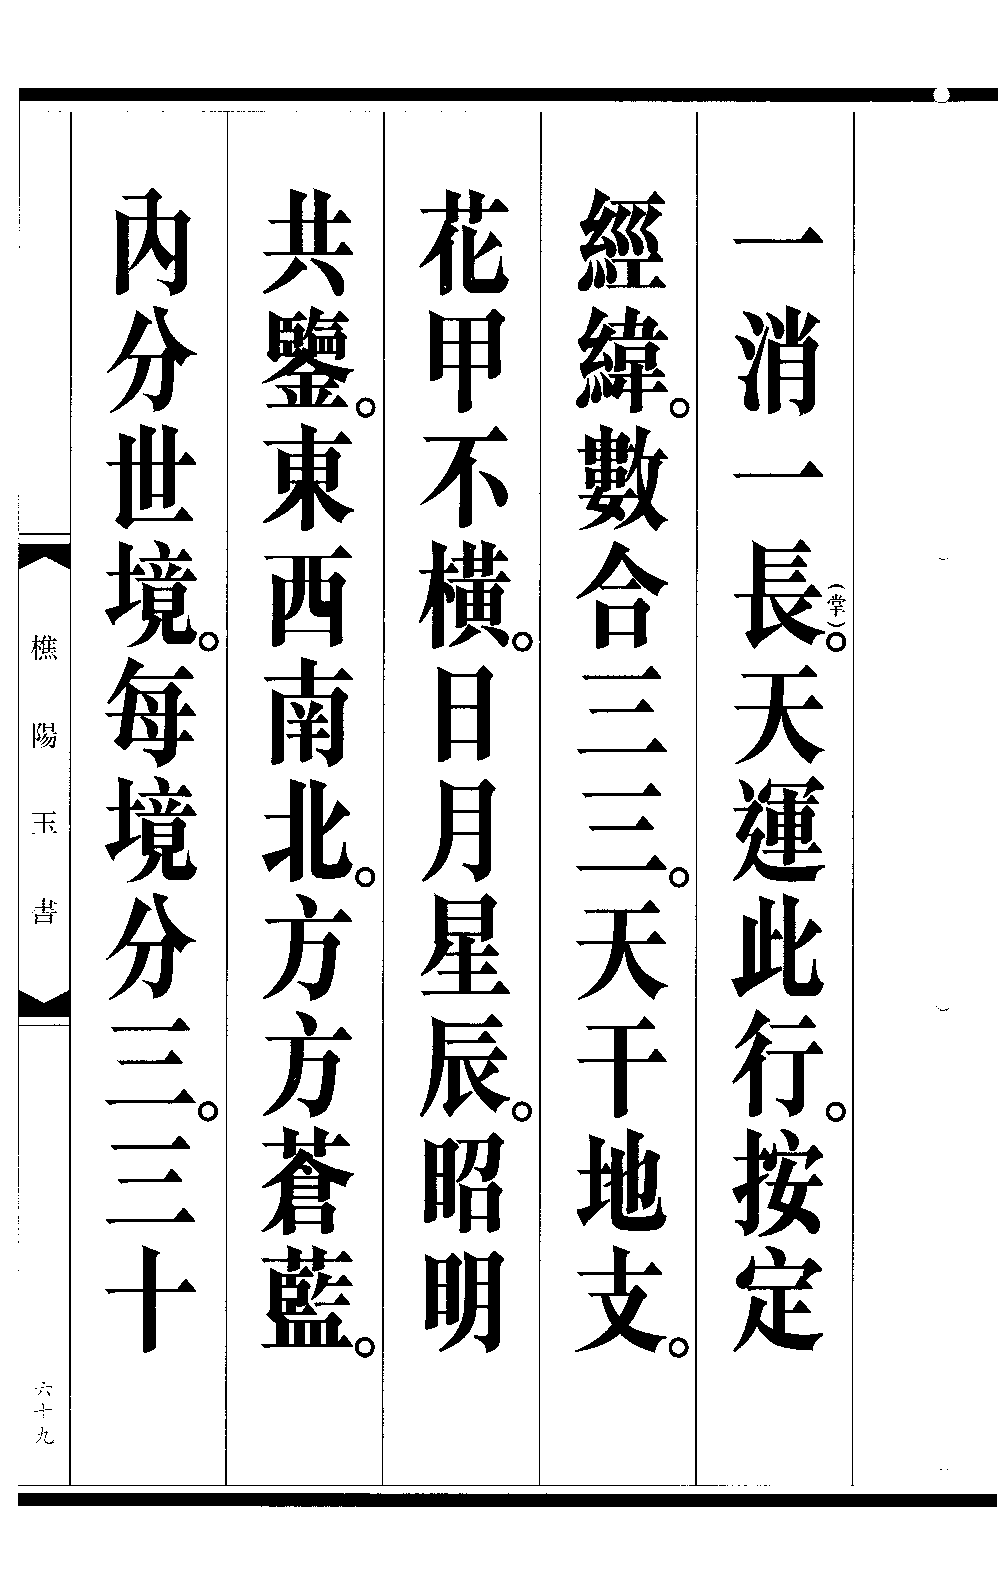 一消一長(掌)。天運此行。按定
經緯。數合三三。天干地支。
花甲不橫。日月星辰。昭明
共鑒。東西南北。方方蒼藍。
內分世境。每境分三。三十
樵陽玉書
六十九